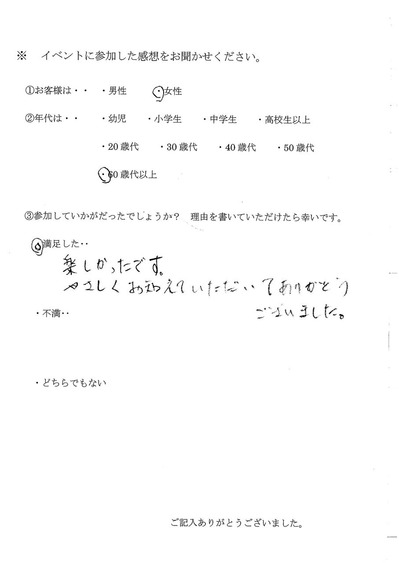 ※　イベントに参加した感想をお聞かせください。
①お客様は・・　・男性　・女性
②年代は・・　・幼児　・小学生　・中学生　・高校生以上
・20歳代　・30歳代　・40歳代　・50歳代
・60歳代以上
③参加していかがだったでしょうか？　理由を書いていただけたら幸いです。
・満足した・・
楽しかったです。
やさしくお教えていただいてありがとう
ございました。
・不満・・
・どちらでもない
ご記入ありがとうございました。